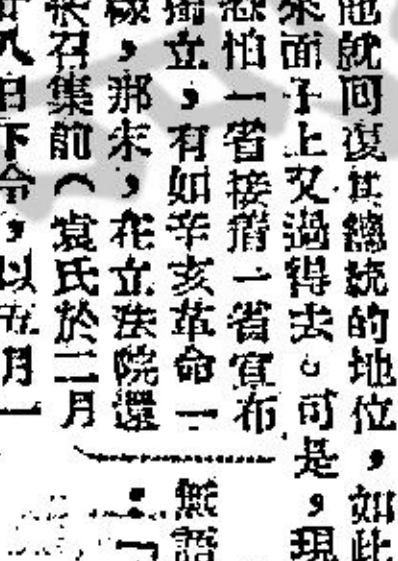 他就回復其總統的地位，如此
來面子上又過得去。可是，現
怕一省接着一省宣布
獨立，有如辛亥革命一
，那末，在立法院還
召集前（袁氏於二月
八日下令，以五月一
無